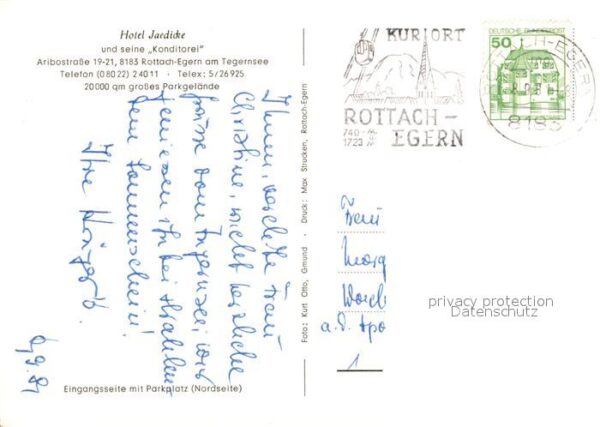 Hotel Jaedicke
und seine „Konditorei"
Aribostraße 19-21, 8183 Rottach-Egern am Tegernsee
Telefon (08022) 24011 · Telex: 5/26925
20000 qm großes Parkgelände
KURORT
ROTTACH-
EGERN
740-
1723 m
DEUTSCHE BUNDESPOST
50
8183
Ihnen, verehrte Frau
Christine, recht herzliche
Grüsse vom Tegernsee, wir
geniessen ihn bei strahlen-
dem Sonnenschein!
Ihre
Foto: Kurt Otto, Gmund · Druck: Max Strucken, Rottach-Egern
Frau
a. d. Apo
1
privacy protection
Datenschutz
Eingangsseite mit Parkplatz (Nordseite)